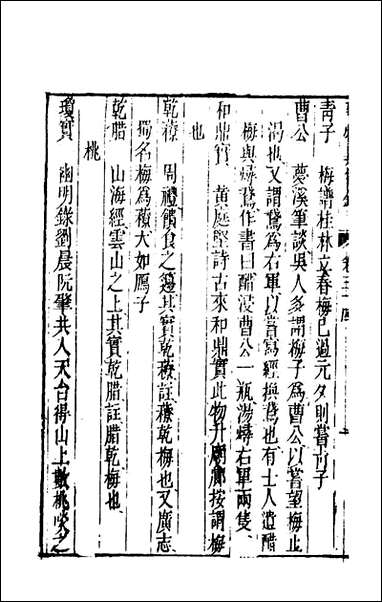 青子　梅譜桂林立春梅已過元夕則嘗青子
曹公　夢溪筆談吳人多謂梅子為曹公以嘗望梅止
渴也又謂鵞為右軍以嘗寫經換鵞也有士人遺醋
梅與燖鵞作書曰醋浸曹公一瓶湯燖右軍兩隻
和鼎實　黃庭堅詩古來和鼎實此物升廟廊按調梅
也
乾䕩　周禮饋食之籩其實乾䕩註䕩乾梅也又廣志
蜀名梅為䕩大如鴈子
乾腊　山海經雲山之上其實乾腊註腊乾梅也
桃
瓊實　幽明錄劉晨阮肇共入天台得山上數桃啖之